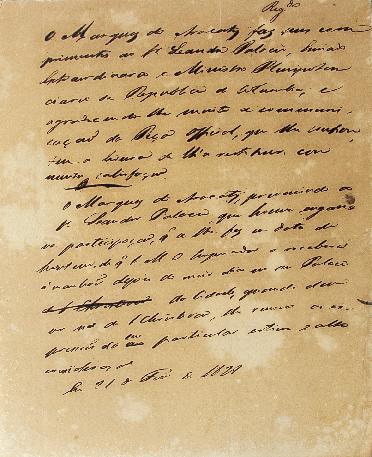 Regdo
O Marquez de Aracaty faz seus com
primentos ao Sr. Leandro Palacio, Enviado
Extraordinario e Ministro Plenipoten
ciario da Republica de Columbia, e
agradecendo lhe muito a communi
cação da Peça Official, que lhe
tem a honra de lh'a restituir com
muita satisfação
O Marquez de Aracaty, prevenindo ao
Sr. Leandro Palacio que houve engano
na participação, q a lhe fez na data de
hontem, de q S. M. o Imperador o receberá
ámanhã depois do meio dia no seu Palacio
de S. Christovão da Cidade, quando deve
ser no de S. Christovão, lhe renova as ex
pressões da sua particular estima e alta
consideração
Em 21 de de 1828